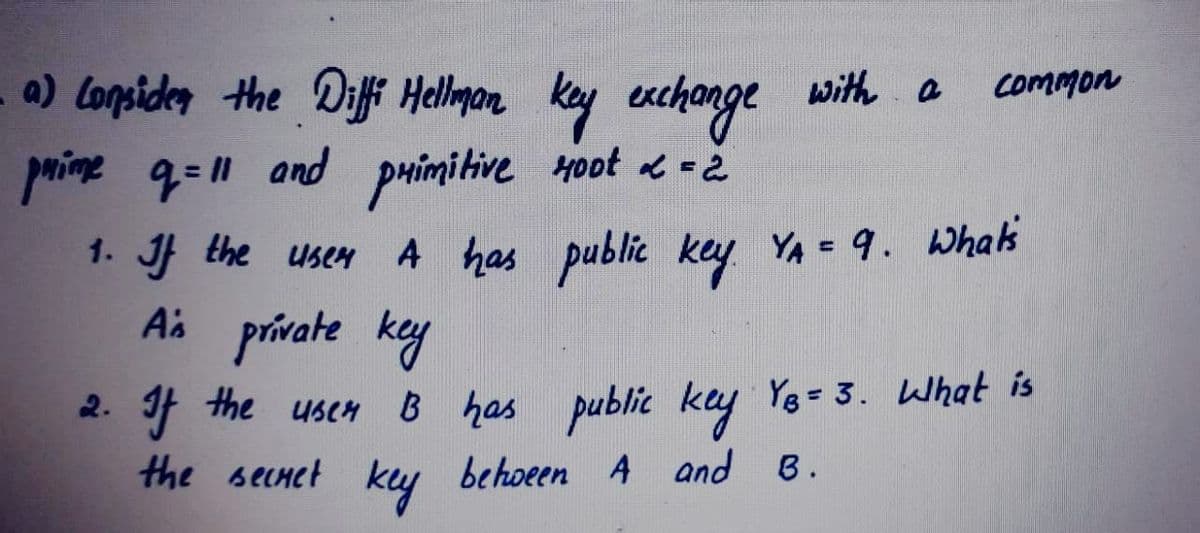 a) Consider the Diffi Hellman key exchange with a common
prime q = 11 and primitive root α = 2
1. If the user A has public key YA = 9. What's
A's private key
2. If the user B has public key YB = 3. What is
the secret key between A and B.